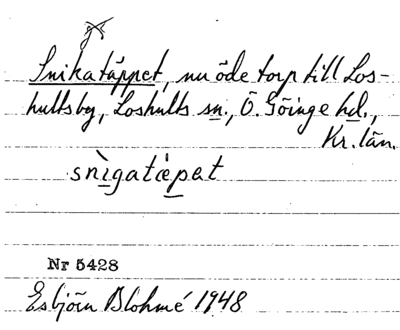 Snikatäppet, nu öde torp till Los-
hultsby, Loshults sn., Ö. Göinge hd.,
Kr. län.
snìgatèpat
Nr 5428
Esbjörn Blohmé 1948